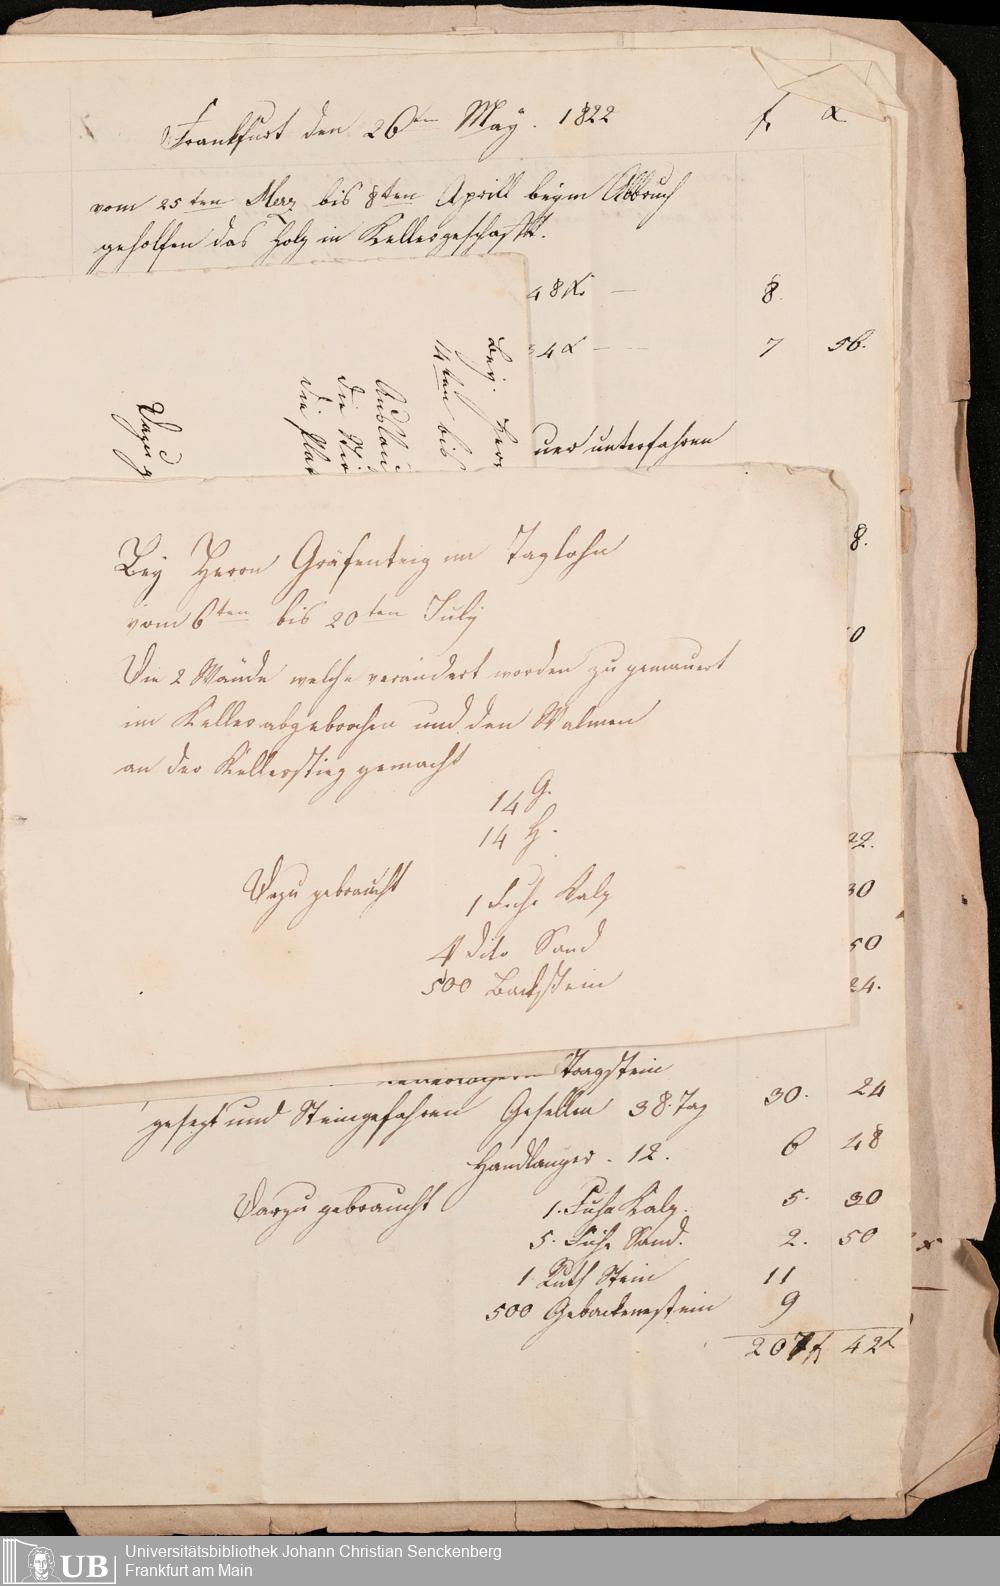 Frankfurt den 26ten May. 1822 f. x
vom 25ten Merz bis 8ten Aprill beym Abbruch
geholfen das Holz in Keller geschafft.
48 Kr — 8.
34 x — 7 56.
Bey Herr
14ten bis
Ausland
die
die Plat
Dazu g
uer unterfahren
8.
0
22.
30
50
24.
Bey Herrn Gräfenteig im Taglohn
vom 6ten bis 20ten July
Die 2 Wände welche verändert worden zu gemauert
im Keller abgebrochen und den Walmen
an der Kellerstieg gemacht
14 G.
14 H.
Dazu gebraucht 1 Fuhr Kalg
4 dito Sand
500 Backstein
Tragstein
gesezt und Stein gefahren Gesellen 38. Tag 30. 24
Handlanger. 12. 6 48
Darzu gebraucht 1. Fuhr Kalg. 5. 30
5. Fuhr Sand. 2. 50
1 Ruth Stein 11
500 Gebackenestein 9
207 f 42 x
UB Universitätsbibliothek Johann Christian Senckenberg
Frankfurt am Main